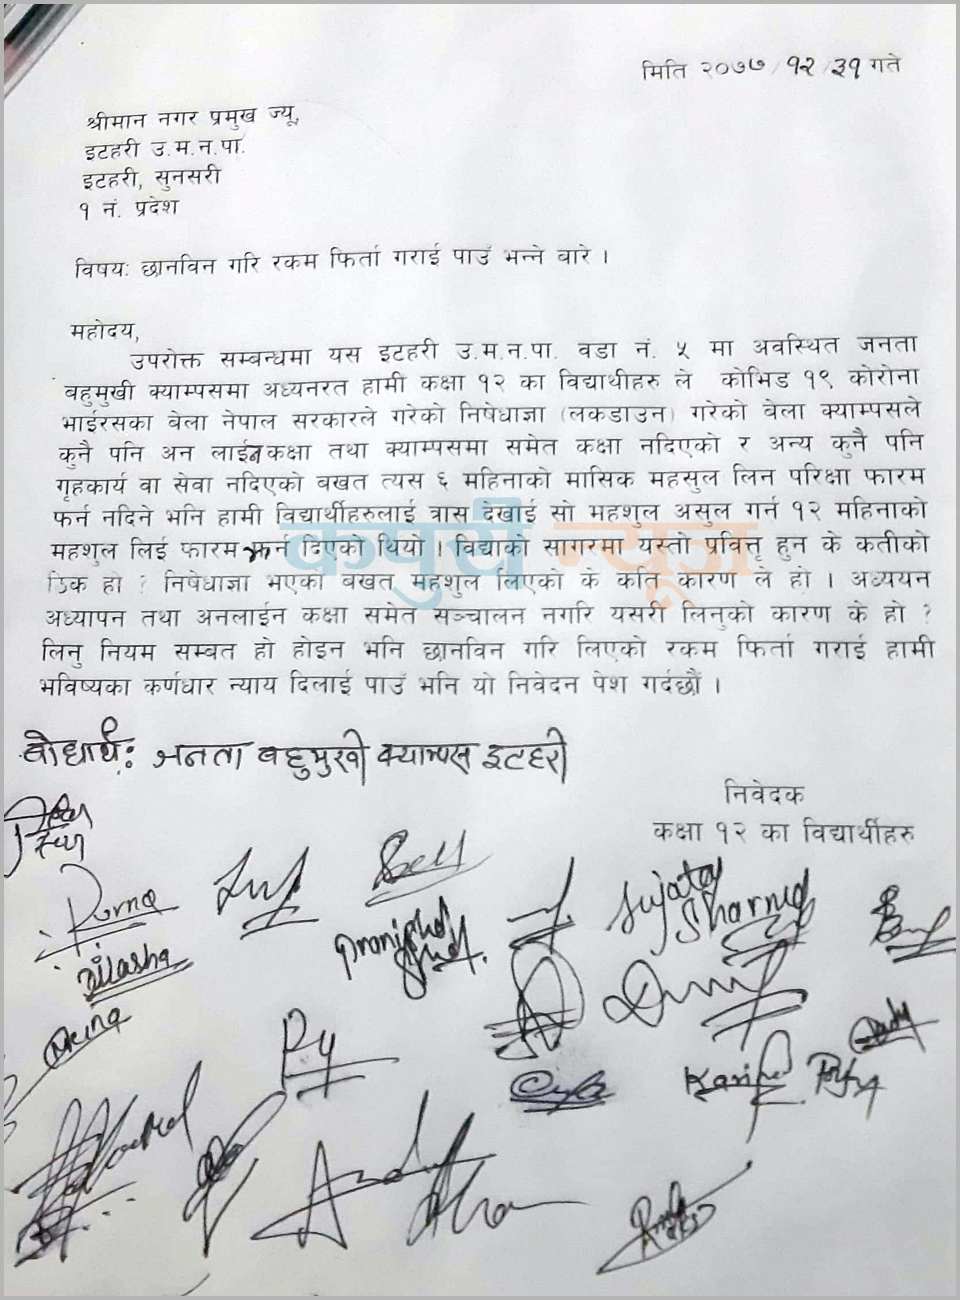 मिति २०७७/१२/३१ गते
श्रीमान नगर प्रमुख ज्यू,
इटहरी उ.म.न.पा.
इटहरी, सुनसरी
१ नं. प्रदेश
विषय: छानविन गरि रकम फिर्ता गराई पाउँ भन्ने बारे ।
महोदय,
उपरोक्त सम्बन्धमा यस इटहरी उ.म.न.पा. वडा नं. ५ मा अवस्थित जनता
बहुमुखी क्याम्पसमा अध्यनरत हामी कक्षा १२ का विद्यार्थीहरु ले कोभिड १९ कोरोना
भाईरसका बेला नेपाल सरकारले गरेको निषेधाज्ञा (लकडाउन) गरेको बेला क्याम्पसले
कुनै पनि अन लाईन कक्षा तथा क्याम्पसमा समेत कक्षा नदिएको र अन्य कुनै पनि
गृहकार्य वा सेवा नदिएको बखत त्यस ६ महिनाको मासिक महसुल लिन परिक्षा फारम
फर्न नदिने भनि हामी विद्यार्थीहरुलाई त्रास देखाई सो महशुल असुल गर्न १२ महिनाको
महशुल लिई फारम भर्न दिएको थियो । विद्याको सागरमा यस्तो प्रवित्तृ हुन के कतीको
ठिक हो ? निषेधाज्ञा भएको बखत महशुल लिएको के कति कारण ले हो । अध्ययन
अध्यापन तथा अनलाईन कक्षा समेत सञ्चालन नगरि यसरी लिनुको कारण के हो ?
लिनु नियम सम्बत हो होइन भनि छानविन गरि लिएको रकम फिर्ता गराई हामी
भविष्यका कर्णधार न्याय दिलाई पाउँ भनि यो निवेदन पेश गर्दछौं ।
बोधार्थ: जनता बहुमुखी क्याम्पस इटहरी
निवेदक
कक्षा १२ का विद्यार्थीहरु
कपुरी न्यूज
Purna
Sujata
Sharma
Dilasha